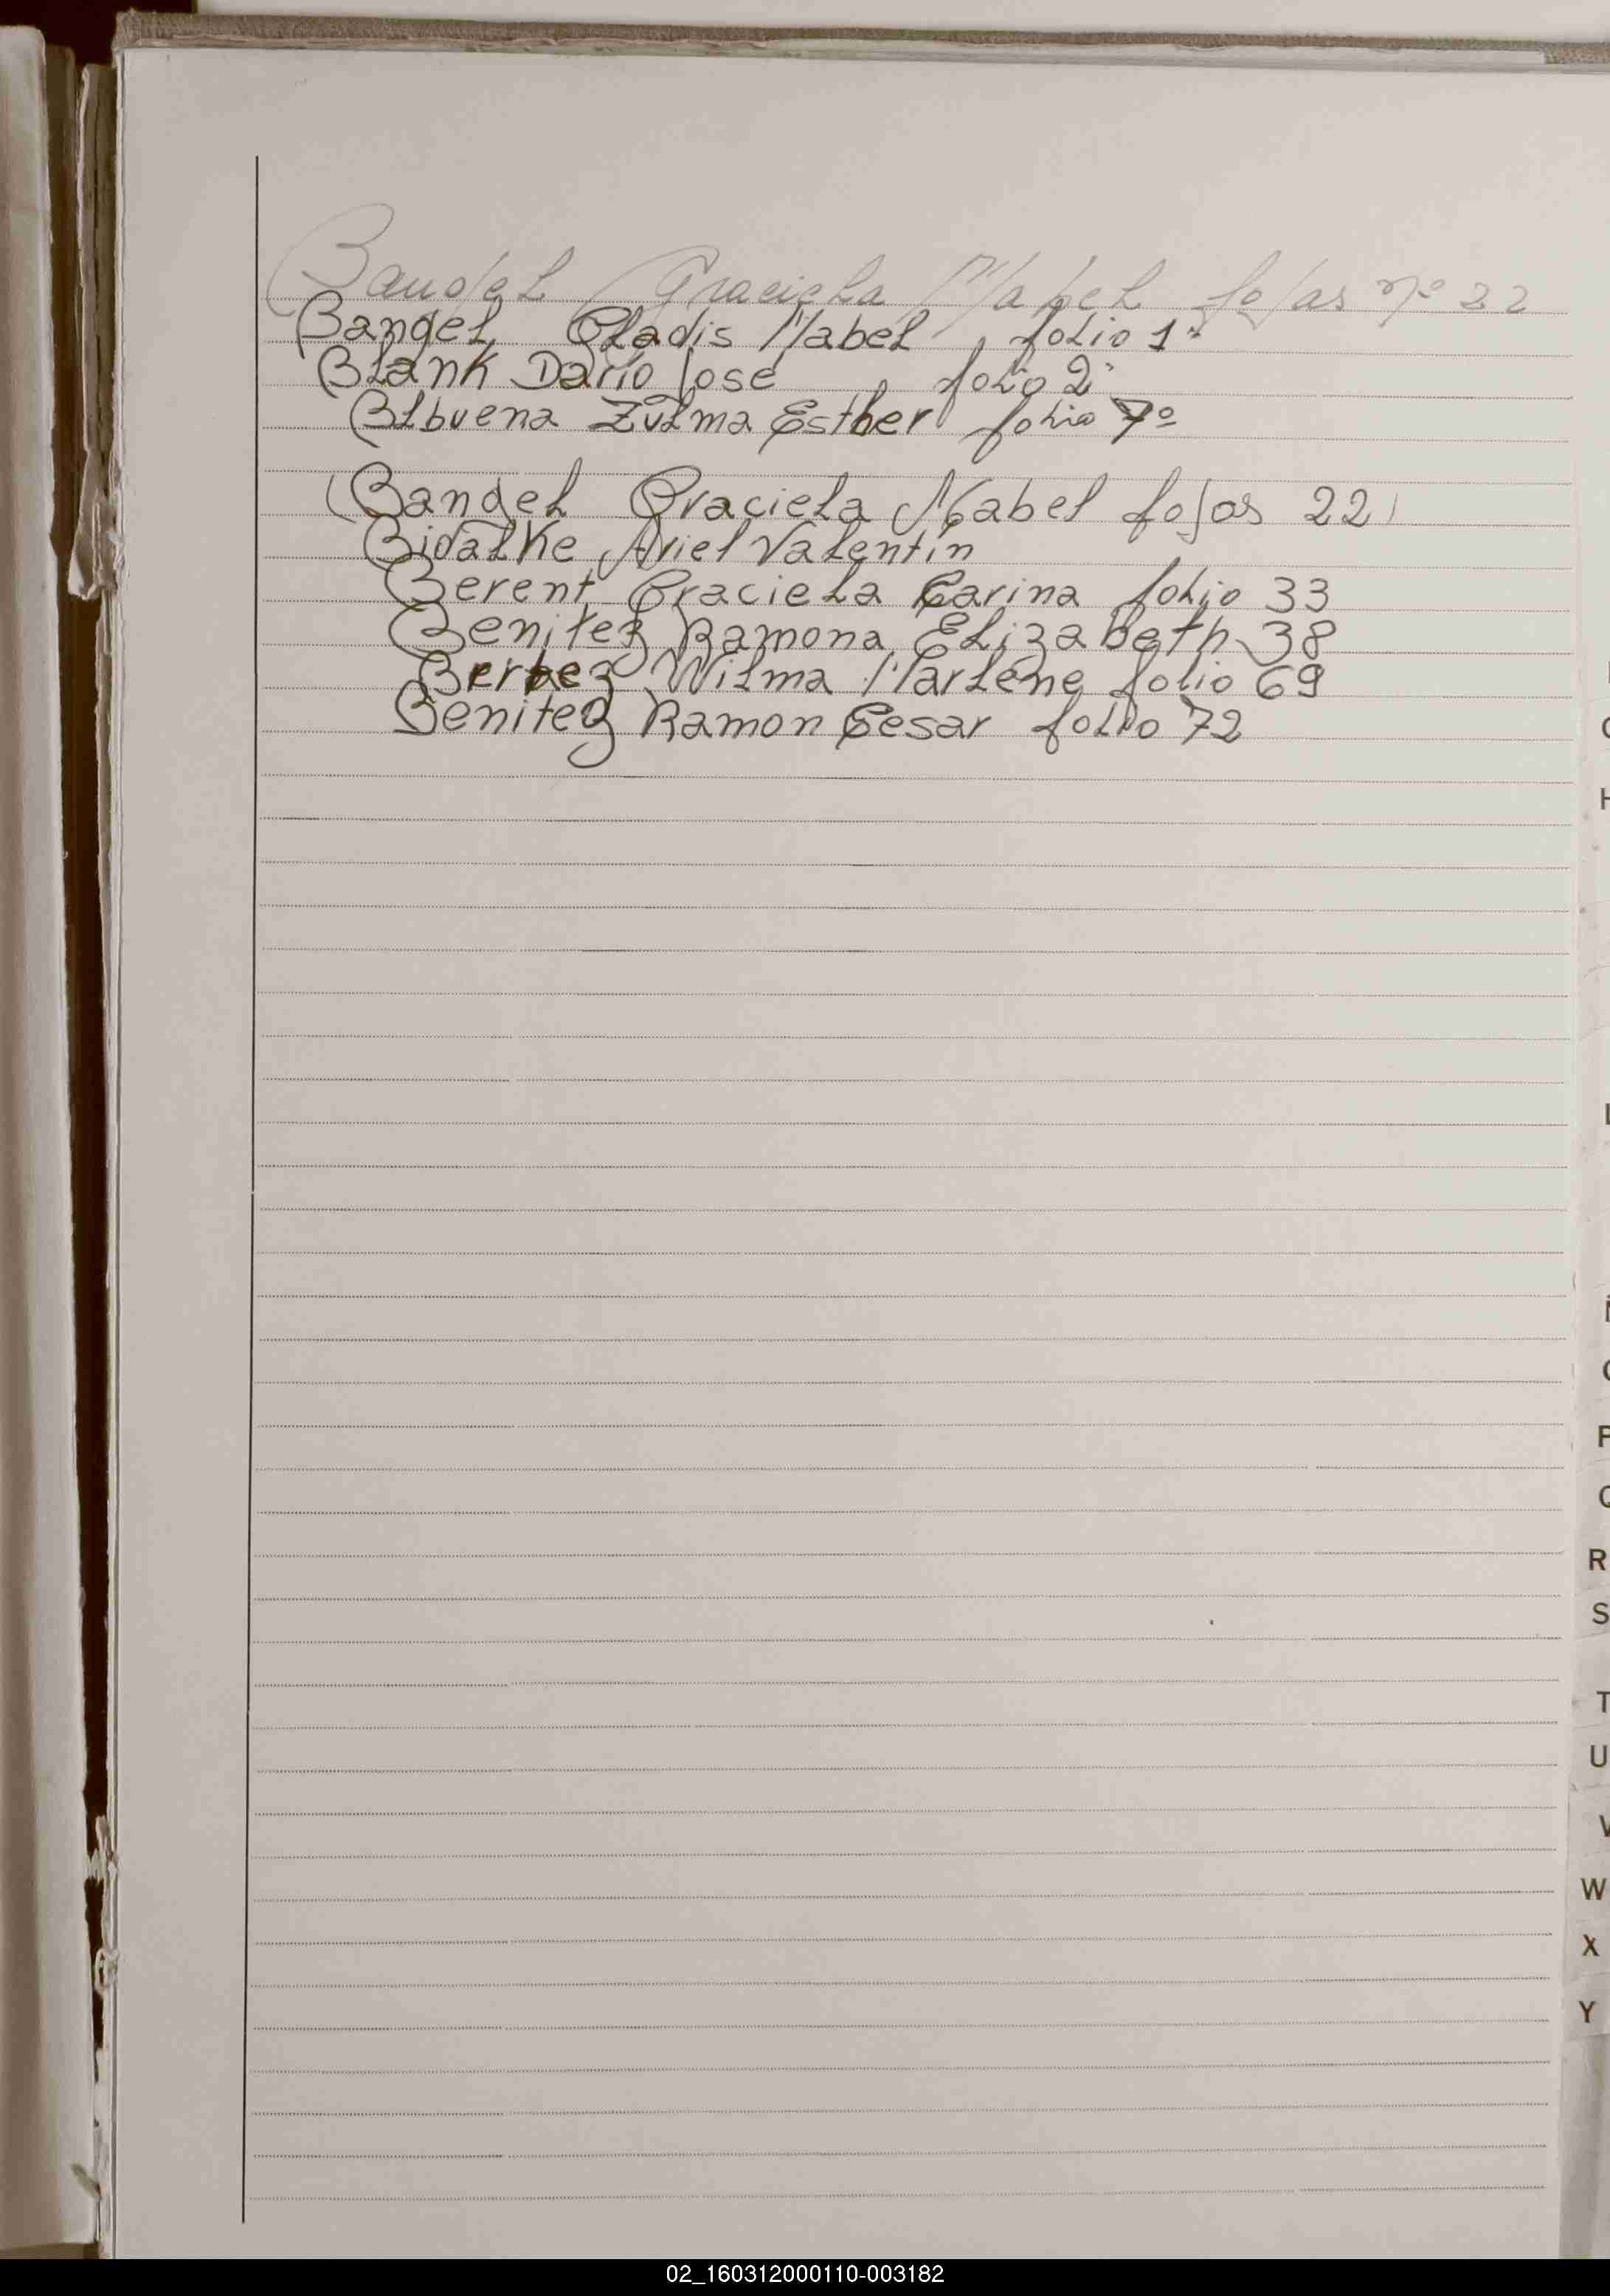 Bandel Graciela Mabel fojas nº 22
Bangel Gladis Mabel folio 1º
Blank Dario Jose folio 2º
Blbuena Zulma Esther folio 7º
Bandel Graciela Mabel fojas 22
Bidalke Ariel Valentin
Berent Graciela Carina folio 33
Benitez Ramona Elizabeth 38
Wilma Marlene folio 69
Benitez Ramon Cesar folio 72
H
P
Q
R
S
T
U
V
W
X
Y
02_160312000110-003182